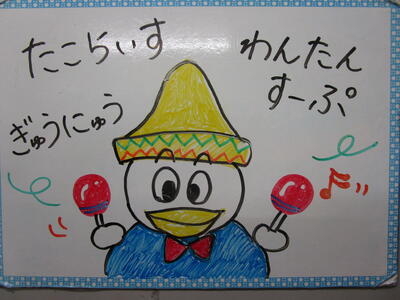 たこらいす
わんたん
すーぷ
ぎゅうにゅう